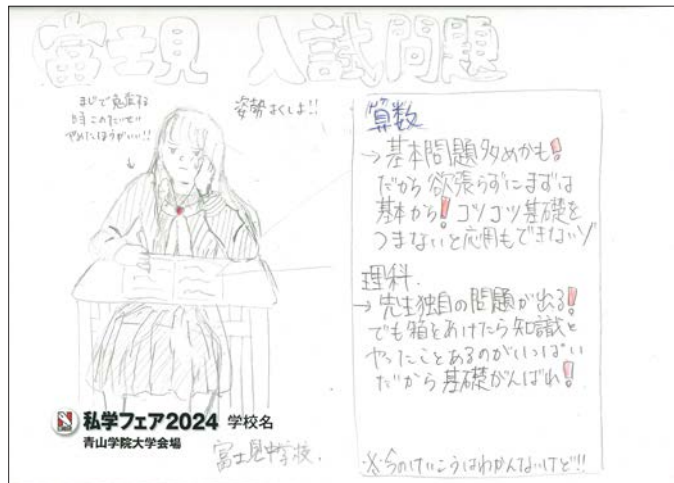 富士見 入試問題
まじで勉強する
時このたいせい
やめたほうがいい!!
↓
姿勢よくしよ!!
算数
→基本問題多めかも!
だから欲張らずにまずは
基本から!コツコツ基礎を
つまないと応用もできないゾ
理科
→先生独自の問題が出る!
でも箱をあけたら知識と
やったことあるのがいっぱい
だから基礎がんばれ!
※今のけいこうはわかんないけど!!
私学フェア2024 学校名
青山学院大学会場
富士見中学校.